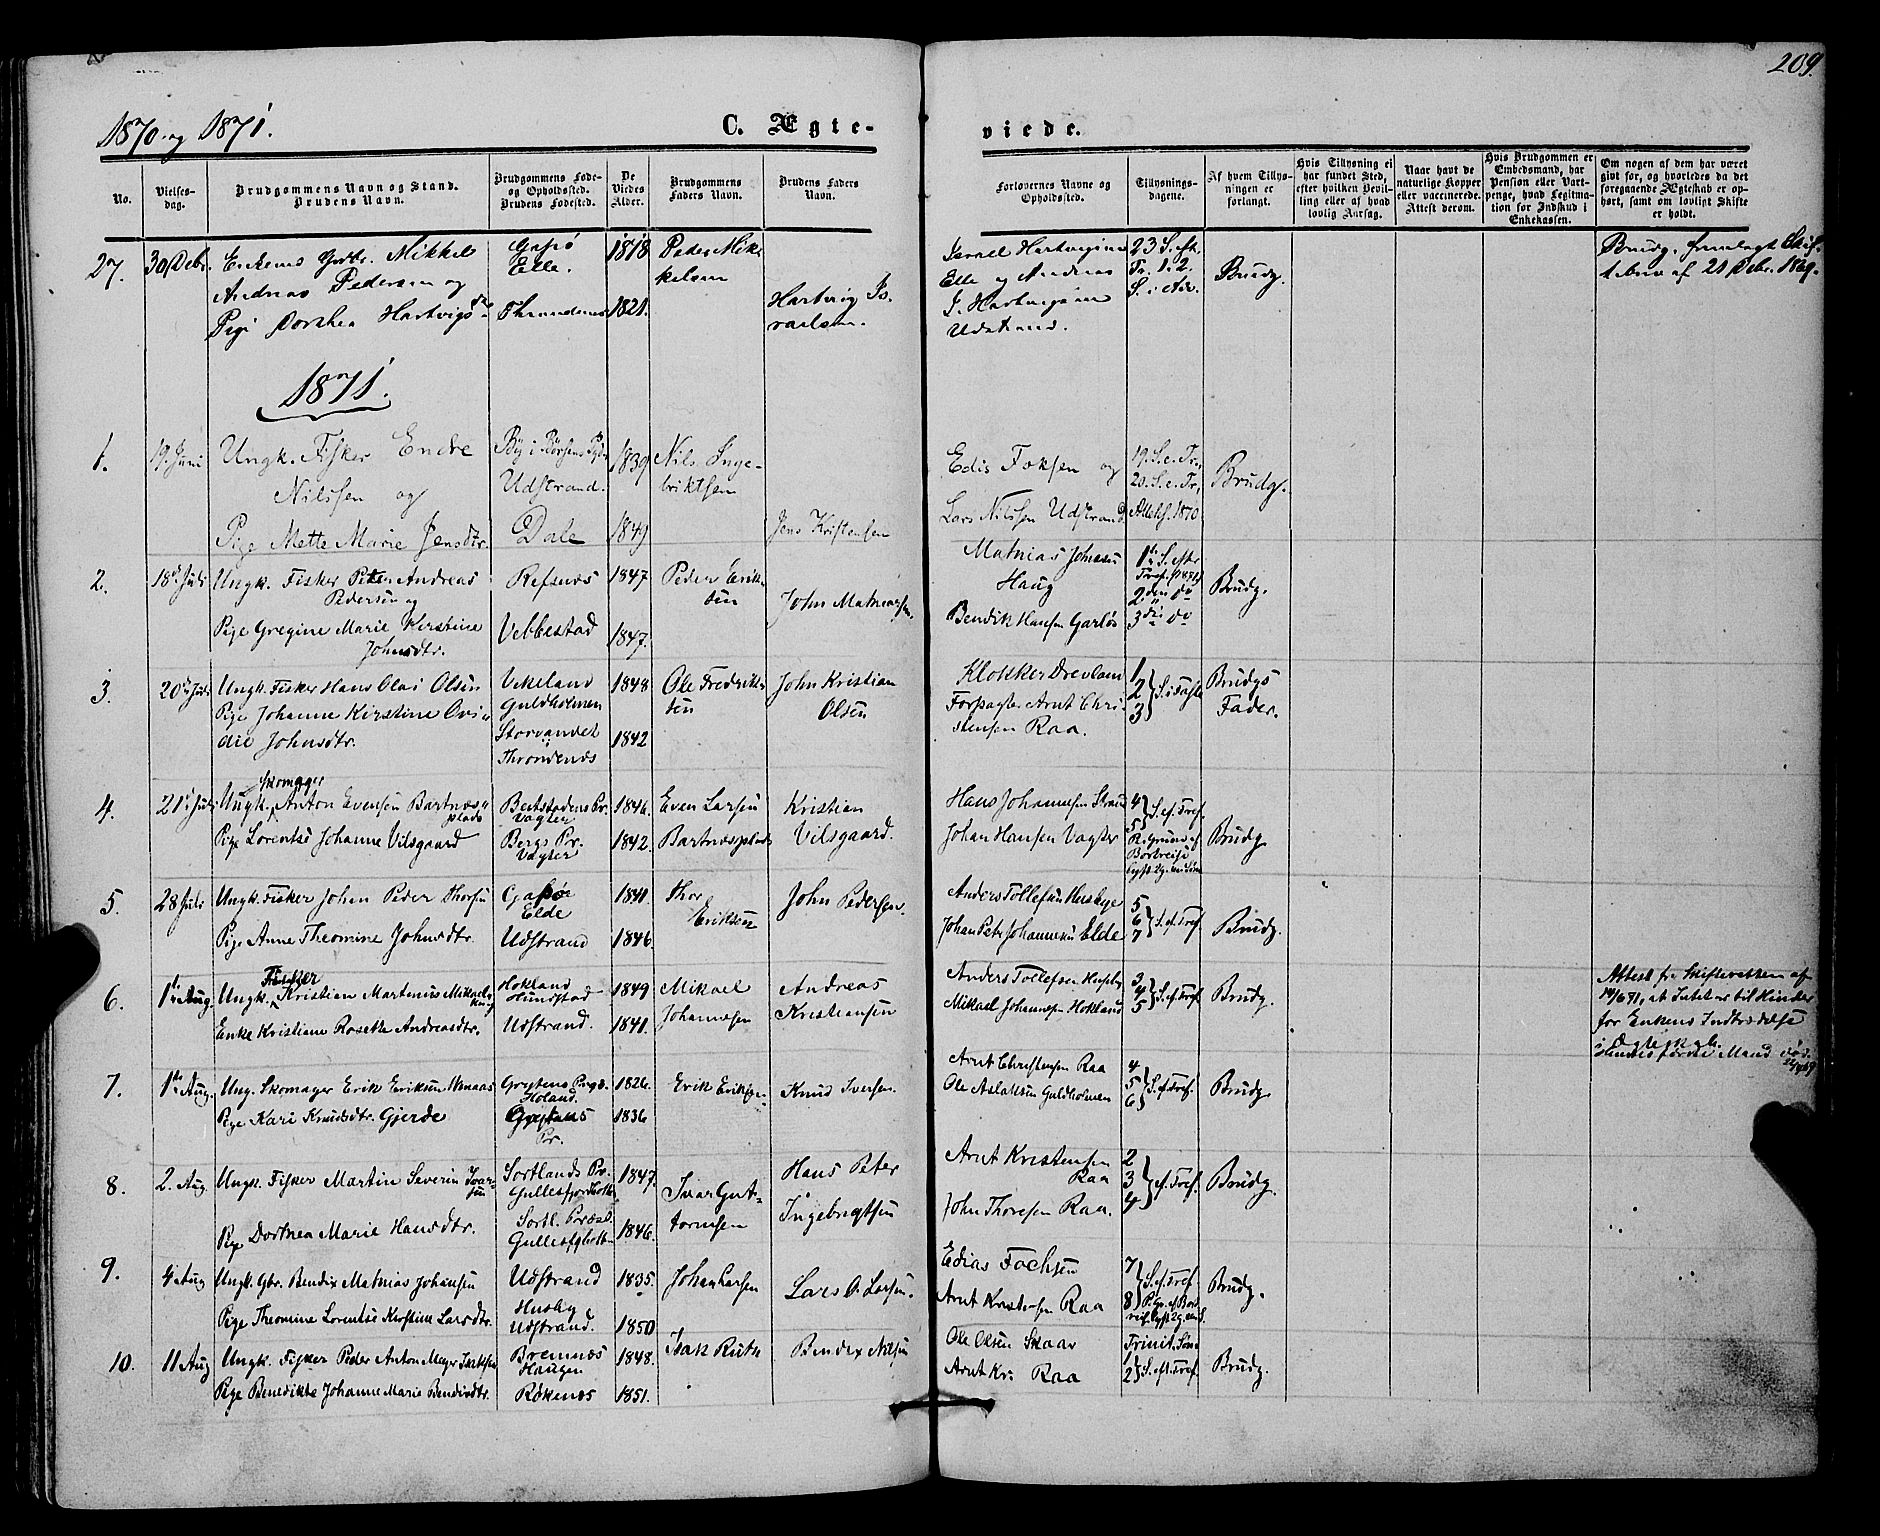 209.
1870 og 1871.
C. Ægte-
viede.
No.
Vielses-
dag.
Brudgommens Navn og Stand.
Brudens Navn.
Brudgommens Føde-
og Opholdssted.
Brudens Fødested.
De
Viedes
Alder.
Brudgommens
Faders Navn.
Brudens Faders
Navn.
Forlovernes Navne og
Opholdssted.
Tillysnings-
dagene.
Af hvem Tillys-
ningen er
forlangt.
Hvis Tillysning ei
har fundet Sted,
efter hvilken Bevil-
ling eller af hvad
lovlig Aarsag.
Naar havt de
naturlige Kopper
eller vaccinerede.
Attest derom.
Hvis Brudgommen er
Embedsmand, har
Pension eller Vart-
penge, hvad Legitima-
tion for Indskud i
Enkekassen.
Om nogen af dem har været
givt før, og hvorledes da det
foregaaende Ægteskab er op-
hørt, samt om lovligt Skifte
er holdt.
27.
30 Debr.
Enkem. Mikkel
Andreas Pedersen og
Pige Dorthea Hartvigsdtr.
Gapø
Elle.
Throndenes
1818
1821.
Peder Mik-
kelsen
Hartvig Is-
raelsen.
Israel Hartvigsen
Elle og Andreas
J. Hartvigsen
Udstrand.
23 S. eft.
Tr. 1. 2.
S. i Adv.
Brudg.
Brudg. fremlagt Skif-
tebrev af 21 Debr. 1869.
1871.
1.
19. Juni
Ungk. Fisker Endre
Nilssen og
Pige Mette Marie Jensdtr.
By i Børsens
Udstrand.
Dale
1839
1849
Nils Inge-
briktsen
Jens Kristensen
Edis Foksen og
Lars Nilssen Udstrand
19. S. e. Tr.,
20. S. e. Tr.,
1870
Brudg.
2.
18de Juli
Ungk. Fisker Peter Andreas
Pedersen og
Pige Gregine Marie Kirstine
Johnsdtr.
Refsnes
Vebbestad
1847
1847.
Peder Erik-
sen
John Mathiassen.
Mathias Johnsen
Haug
Bendik Hansen Garløs
1te S. efter
Tref. (1871)
2den do
3die do
Brudg.
3.
20de Juli
Ungk. Fisker Hans Olai Olsen
Pige Johanne Kirstine Ovi-
die Johnsdtr.
Vikeland
Guldholmen
Storvandet
Throndenes
1848
1842
Ole Fredrik-
sen
John Kristian
Olsen
Klokker Drevland
Forpagter Arnt Chri-
stensen Raa.
1
2
3 } S. i Faste
Brudgs
Fader.
4.
21de Juli
Skomager
Ungk. Anton Evensen Bartnes-
plads
Pige Lorentse Johanne Vilsgaard
Beitstadens Pr.
Vagter
Bergs Pr.
Vagter
1846.
1842.
Even Larsen
Bartnesplads
Kristian
Vilsgaard.
Hans Johannesen
Johan Hansen Vagter
4
5 } S. ef. Tref.
P. Grund af
Bortreise
Brudg.
5.
28 Juli
Ungk. Fisker Johan Peder Thorsen
Pige Anne Theomine Johnsdtr.
Gapøe
Elde
Udstrand
1841.
1846.
Thor
Eriksen
John Pedersen.
Anders Tollefsen Husbye
Johan Peter Johannesen Elde
5
6
7 } S. ef. Tref.
Brudg.
6.
1te Aug.
Fisker
Ungk. Kristian Martinus Mikaelsen
Enke Kristiane Rosette Andreasdtr.
Hokland
Hundstad
Udstrand.
1849
1841.
Mikael
Johannesen
Andreas
Kristiansen
Anders Tollefsen Husby
Mikael Johannesen Hokland
3
4
5 } S. ef. Tref.
Brudg.
Attest fr. Skifteretten af
14/6 71, at Intet er til Hinder
for Enkens Indtrædelse
i Ægteskab.
Hendes første Mand død
7.
1te Aug.
Ung. Skomager Erik Eriksen
Pige Kari Knudsdtr. Gjerde
Grytens Prgd.
Holand.
Grytens
Pr.
1826.
1836
Erik Eriksen.
Knud Iversen.
Arnt Christensen Raa
Ole Aslaksen Guldholmen
4
5
6 } S. ef. Tref.
Brudg.
8.
2. Aug.
Ungk. Fisker Martin Severin Ivar-
sen
Pige Dorthea Marie Hansdtr.
Sortlands Pr.
Gullesfjordbotn
Sortl. Præst.
Gullesfjbotn
1847.
1846.
Ivar Gut-
tormsen
Hans Peter
Ingebrigtsen
Arnt Kristensen
Raa
John Thoresen Raa.
2
3
4 } ef. Tref.
Brudg.
9.
4 Aug
Ungk. Gbr. Bendix Mathias Johansen
Pige Theomine Lorentse Kirstine Larsdtr.
Udstrand
Husby
Udstrand.
1835.
1850
Johan Larsen
Lars O. Larsen.
Edias Fochsen
Arnt Kristensen Raa
7
8 } S. ef. Tref.
P. Gr. af Bort-
reise
Brudg.
10.
11 Aug
Ungk. Fisker Peder Anton Meyer Isaksen
Pige Benedikte Johanne Marie Bendixdtr.
Bremnes
Haugen
Røkenes
1848.
1851.
Isak Ruth
Bendix Nilsen
Ole Olsen Skaar
Arnt Kr. Raa
Trinit. Søn
1
2 } S. ef. Tref.
Brudg.